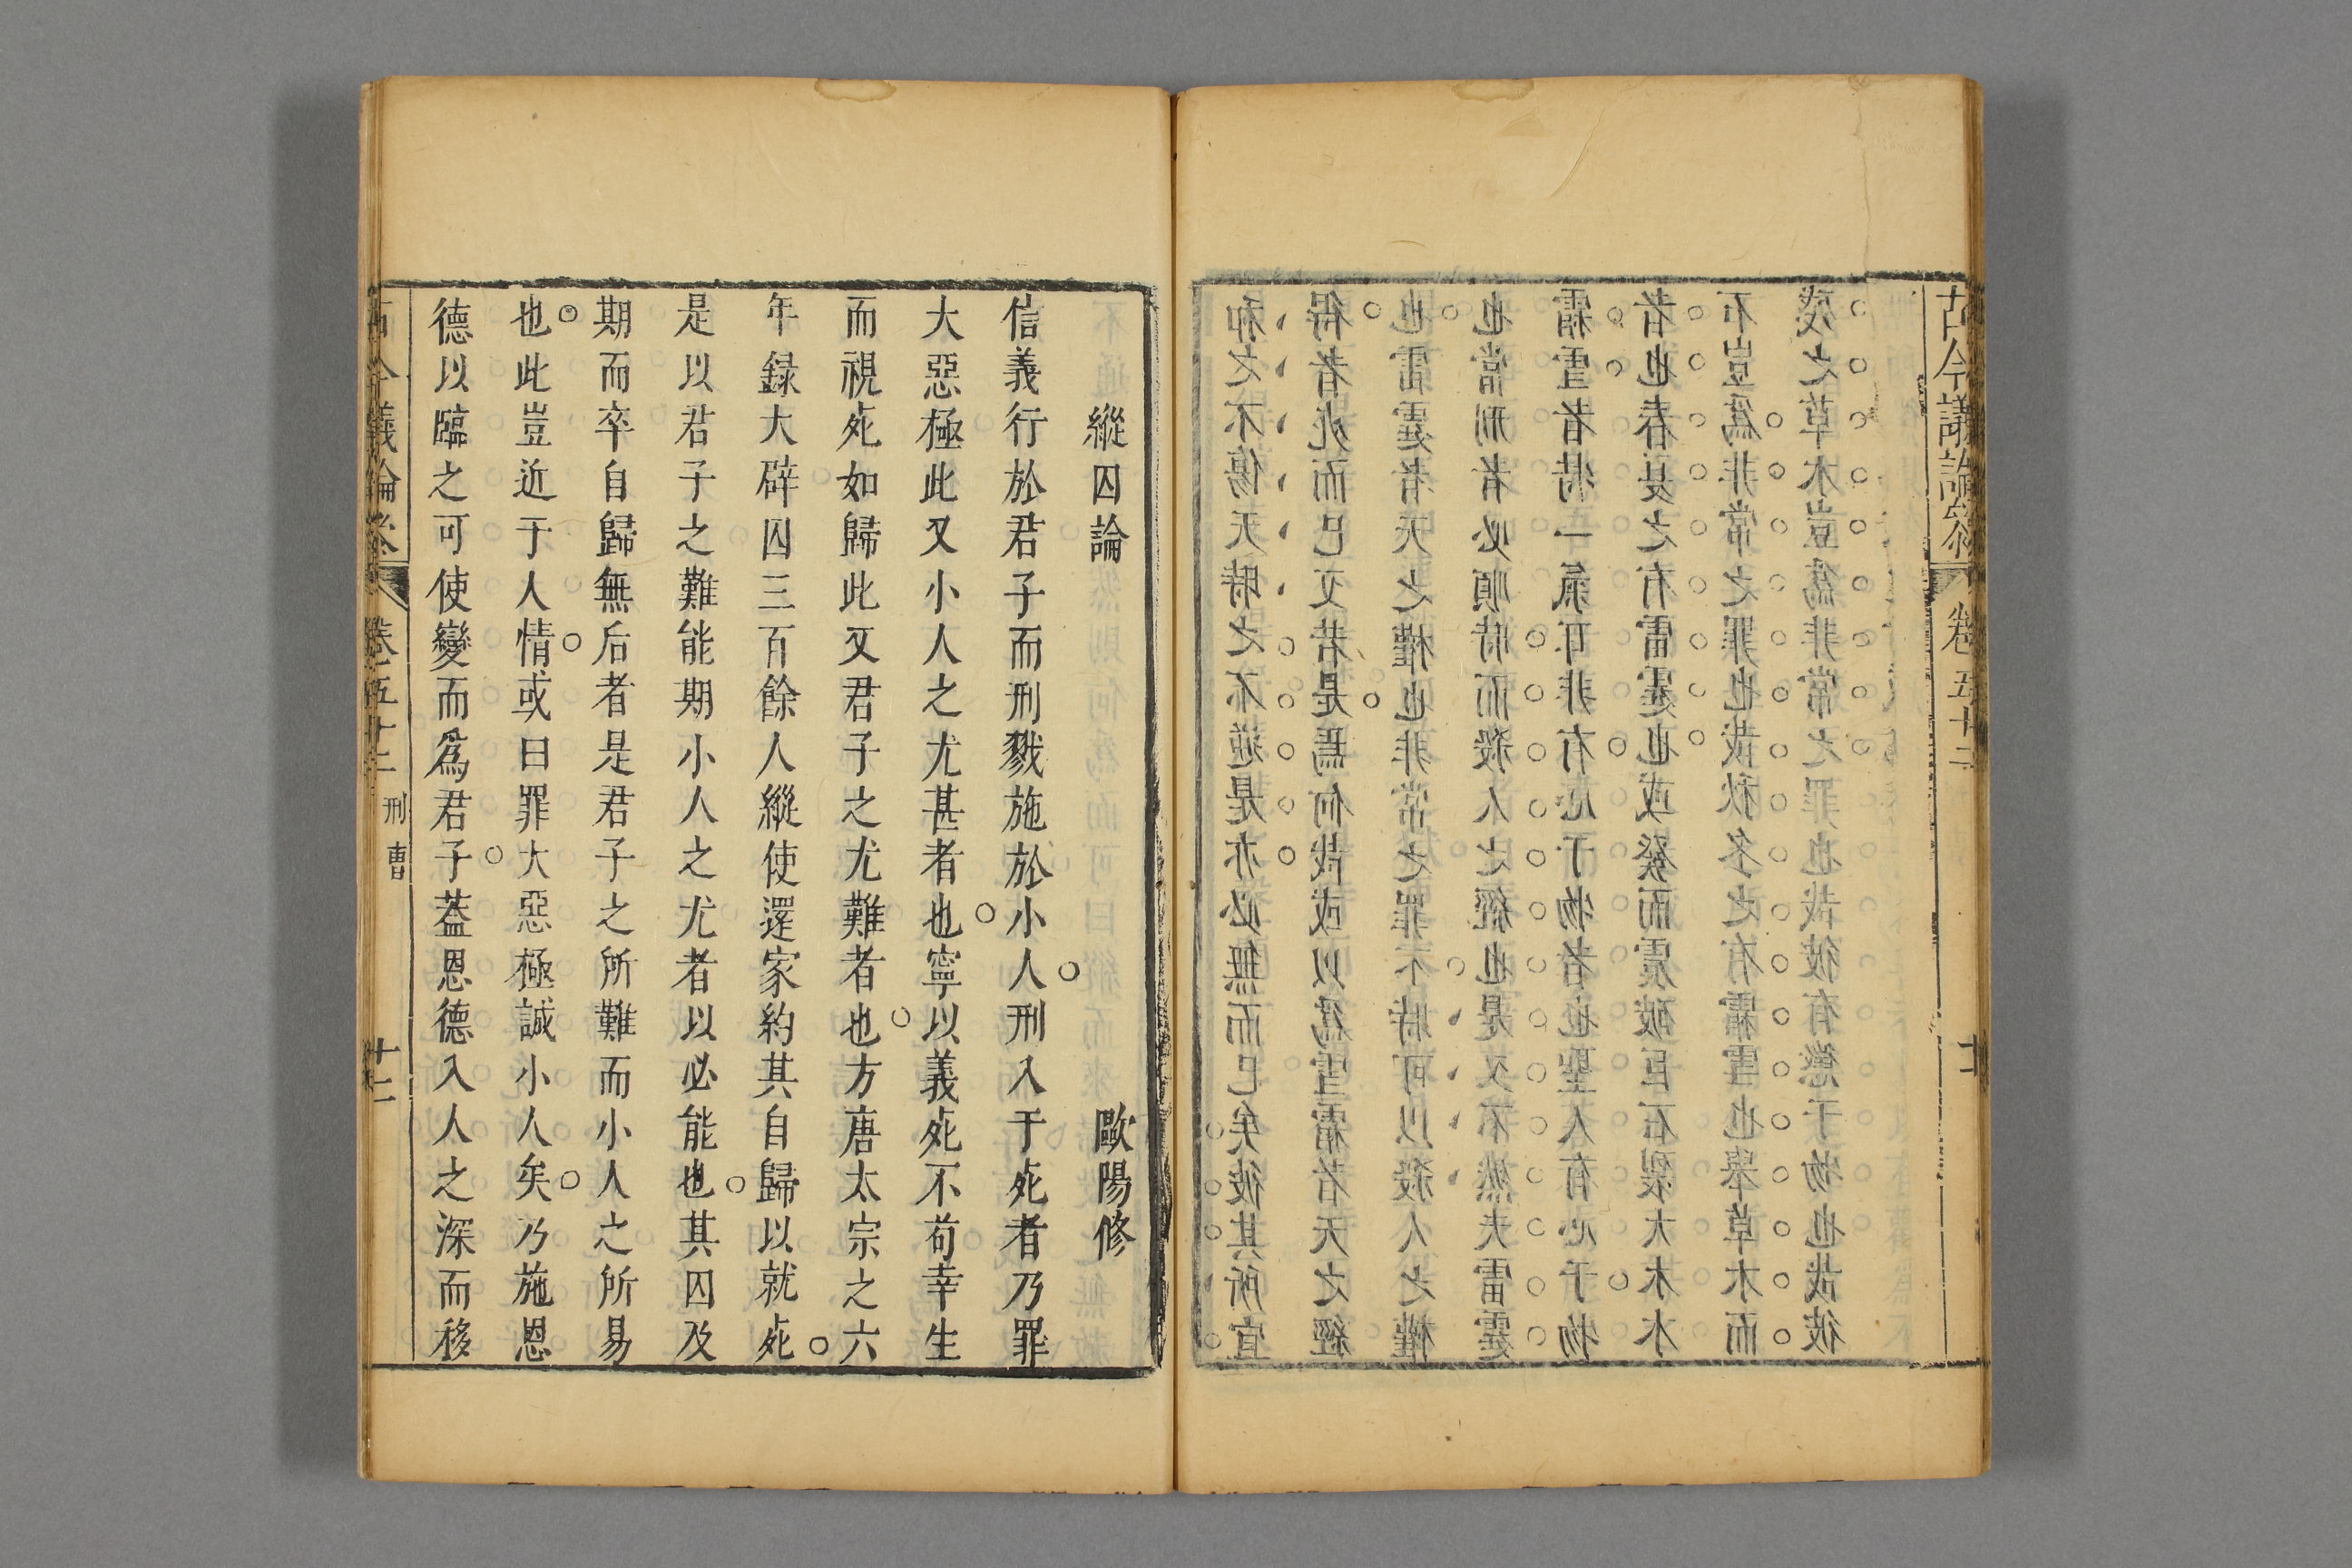 古今議論叅 卷五十二
和之不傷天時之不逆是亦必無而已矣彼其所宜
得者死而已又若是焉何哉或以爲雪霜者天之經
也雷霆者天之權也非常之罪不時可以殺人之權
也常刑者必順時而殺人之經也是又不然夫雷霆
霜雪者特一氣耳非有心于物者也聖人有心于物
者也春夏之有雷霆也或發而震破巨石裂大木木
石豈爲非常之罪也哉秋冬之有霜雪也舉草木而
殘之草木豈爲非常之罪也哉彼有懲于物也哉彼
縱囚論 歐陽修
信義行於君子而刑戮施於小人刑入于死者乃罪
大惡極此又小人之尤甚者也寧以義死不茍幸生
而視死如歸此又君子之尤難者也方唐太宗之六
年錄大辟囚三百餘人縱使還家約其自歸以就死
是以君子之難能期小人之尤者以必能也其囚及
期而卒自歸無后者是君子之所難而小人之所易
也此豈近于人情或曰罪大惡極誠小人矣乃施恩
德以臨之可使變而爲君子葢恩德入人之深而移
古今議論叅 卷五十二 刑曹 十二